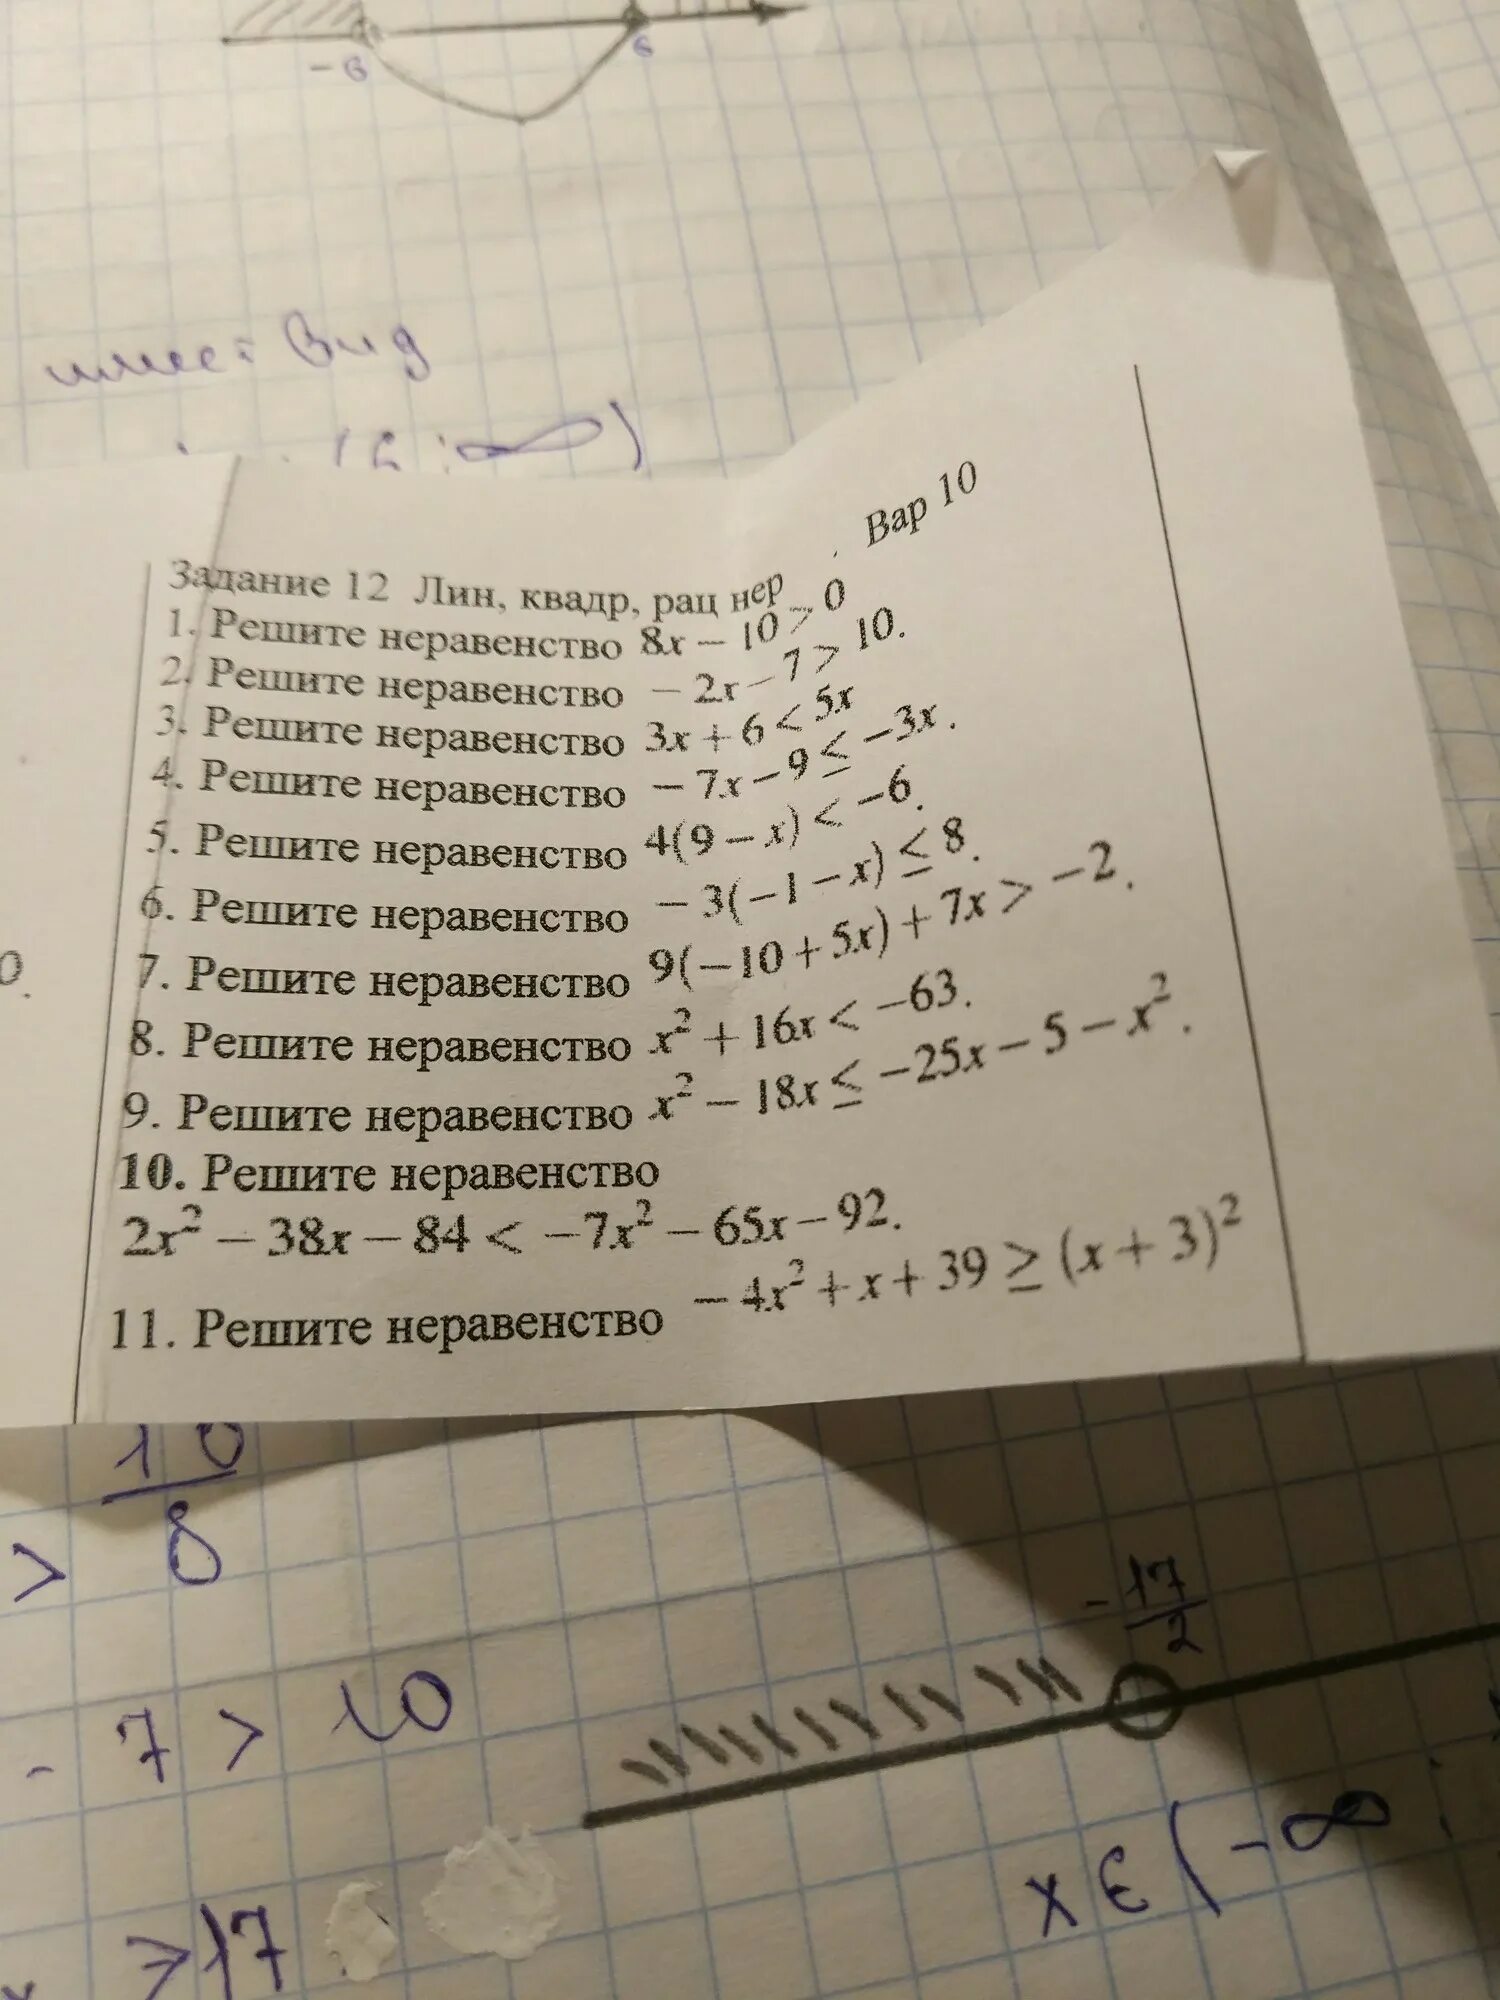 -6
6
имеет вид
∞)
Вар 10
Задание 12 Лин, квадр, рац нер
1. Решите неравенство 8x − 10 > 0
2. Решите неравенство − 2x − 7 > 10.
3. Решите неравенство 3x + 6 < 5x
4. Решите неравенство − 7x − 9 ≤ −3x.
5. Решите неравенство 4(9 − x) < −6.
6. Решите неравенство − 3(−1 − x) ≤ 8.
7. Решите неравенство 9(−10 + 5x) + 7x > −2.
8. Решите неравенство x² + 16x < −63.
9. Решите неравенство x² − 18x ≤ −25x − 5 − x².
10. Решите неравенство
2x² − 38x − 84 < −7x² − 65x − 92.
11. Решите неравенство − 4x² + x + 39 ≥ (x + 3)²
> 10/8
- 17/2
- 7 > 10
x ∈ (-∞ ;
> 17